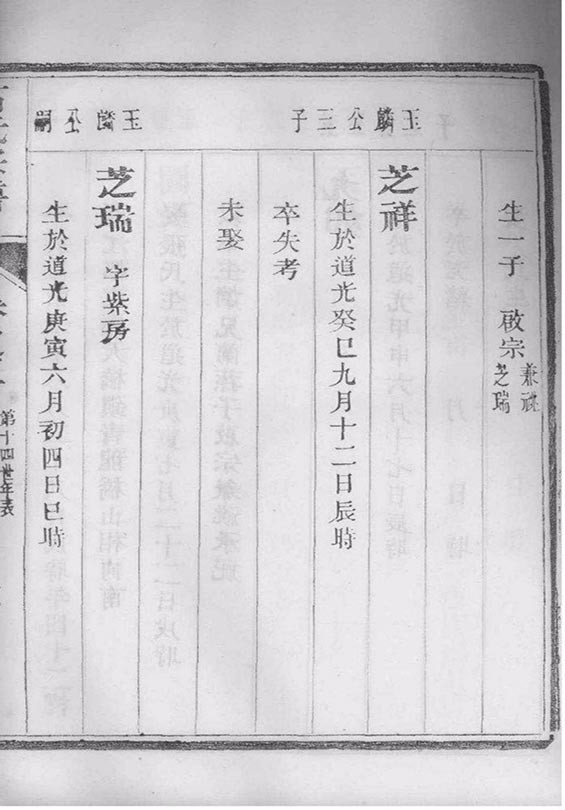 生一子 啟宗 兼祧芝瑞
玉麟公三子
芝祥
生於道光癸巳九月十二日辰時
卒失考
未娶
玉麟公嗣
芝瑞 字紫房
生於道光庚寅六月初四日巳時
第十四世年表